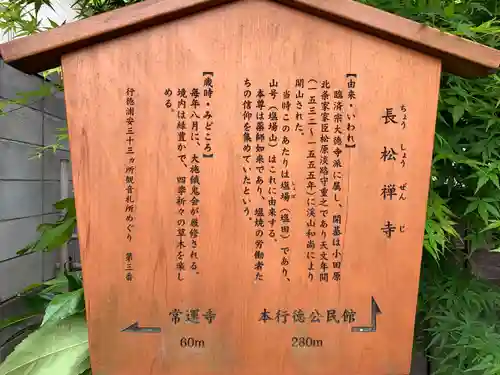 長松禅寺
ちょうしょうぜんじ
【由来・いわれ】
臨済宗大徳寺派に属し、開基は小田原
北条家家臣松原淡路守重之であり天文年間
(一五三二〜一五五五年)に渓山和尚により
開山された。
当時このあたりは塩場(塩田)であり、
山号(塩場山)はこれに由来する。
本尊は薬師如来であり、塩焼の労働者た
ちの信仰を集めていたという。
【歳時・みどころ】
毎年八月に、大施餓鬼会が厳修される。
境内は緑豊かで、四季折々の草木を楽し
める。
行徳浦安三十三ヵ所観音札所めぐり 第三番
本行徳公民館
280m
常運寺
60m